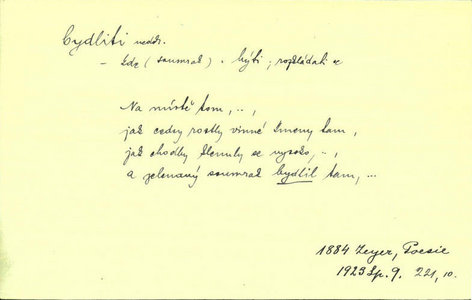 bydliti nedok.
- kde (soumrak) - býti; rozkládati se
Na místě tom, ..,
jak cedry rostly vinné kmeny tam,
jak chodby klenuly se vysoko, ..,
a zelenavý soumrak bydlil tam, ...
1884 Zeyer, Poesie
1923 Sp. 9. 221, 10.